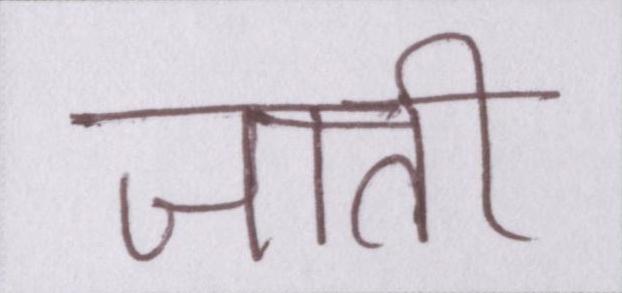 जाती